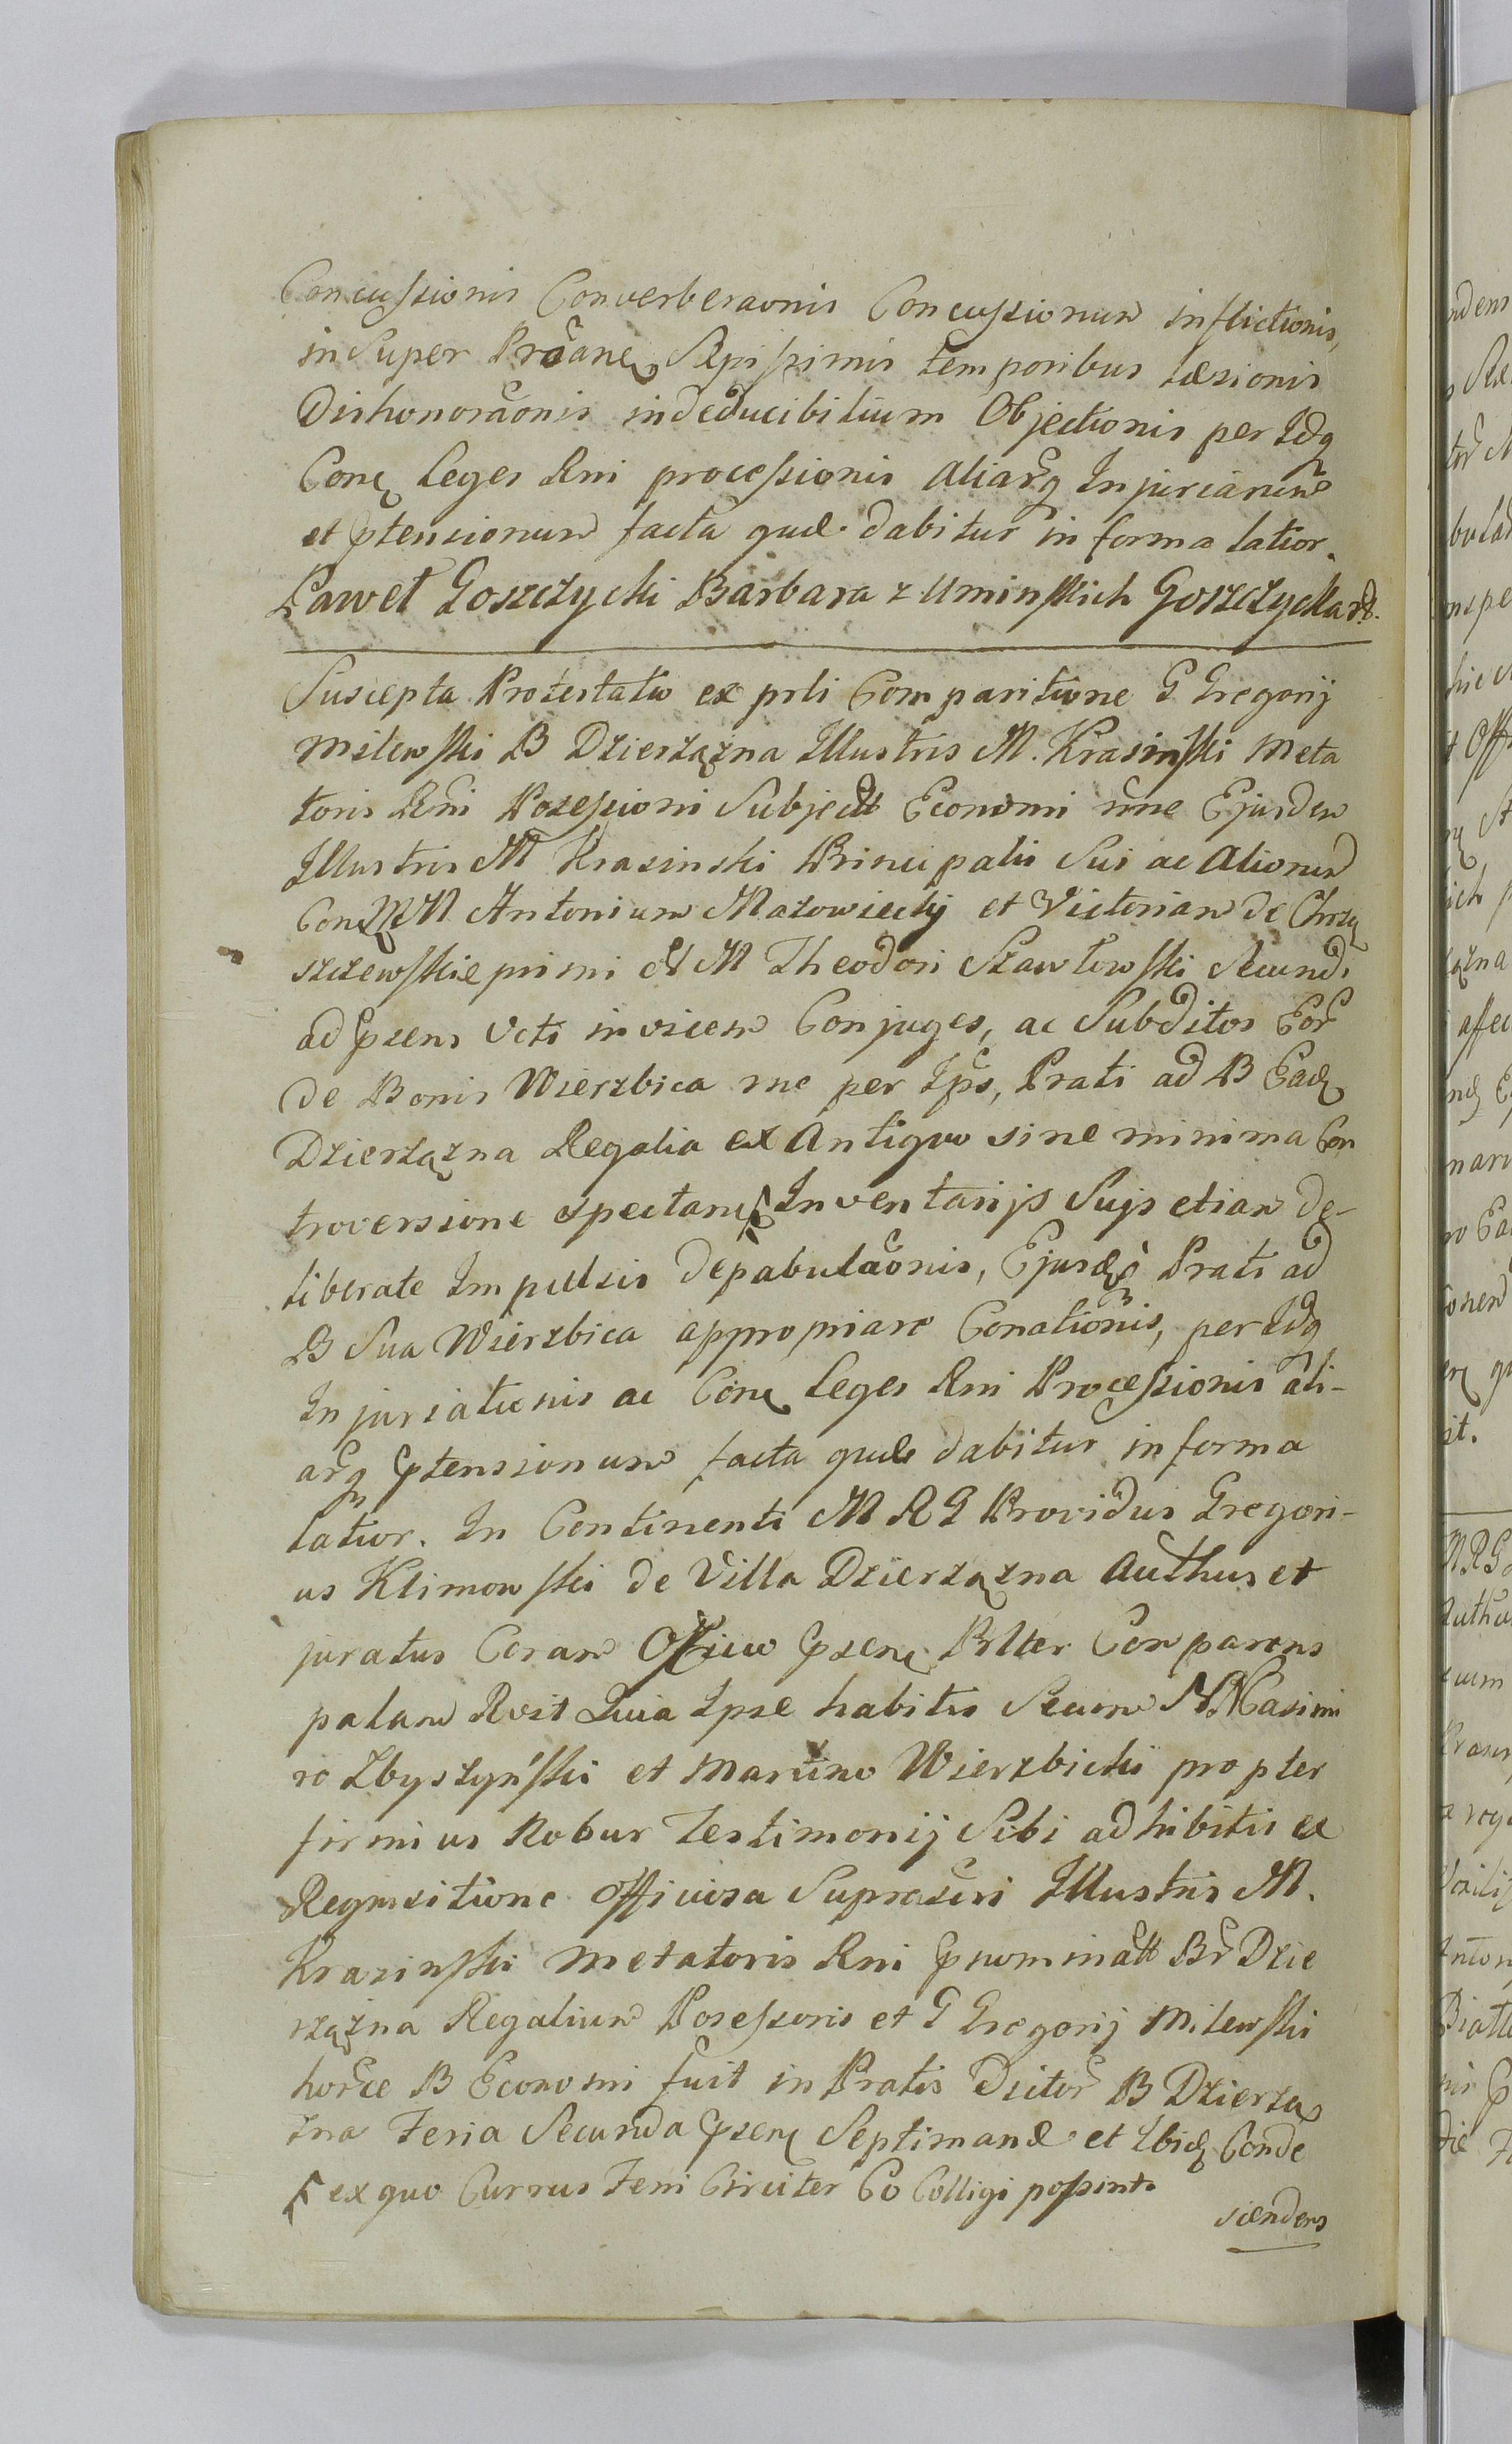 Concussionis Converberaonis Concussionum inflictionis,
in Super Proane Sepissimis temporibus læsionis
Dishonoraonis indeducibilium Objectionis per Idq
Conq leges Rni processionis aliarq Injuriarum
et ptensionum facta quæ dabitur in forma latior.
Paweł Goszczycki Barbara z Uminskich Goszczycka
Suscepta Protestatio ex prli Comparitione G Gregorij
Milewski B Dzierzązna Illustris M. Krasinski Meta
toris Rni Posessioni Subject Economi nne Ejusdem
Illustris M Krasinski Principalis Sui ac Aliorum
Conq MM Antonium Mazowiecki et Victoriam de Chrzą
szczewskie primi et M Theodori Szawłowski Secundi
ad psens Voti invicem Conjuges, ac Subditos Eor
de Bonis Wierzbica nc per Ips, Prati ad B Eadq
Dzierzązna Regalia ex Antiquo sine minima Con
troversione spectanq Inventarijs Sujs etiam de-
liberate Impulsis depabulaonis, Ejusdq Prati ad
B Sua Wierzbica appropriare Conationis, per Idq
Injuriationis ac Conq leges Rni Processionis ali-
arq ptensionum facta quæ dabitur in forma
latior. In Continenti M R G Providus Gregori-
us Klimowski de Villa Dzierzązna Authus et
juratus Coram Officio psenq Prlter Comparens
palam Rvit Quia Ipse habitis Secum NN Casimi
ro Zbyszyński et Martino Wierzbicki propter
firmius Robur Testimonij Sibi adhibitis ex
Requisitione Officiosa Suprascri Illustris M.
Krasinski Metatoris Rni pnominatt Br Dzie
rzązna Regalium Posessoris et G Gregorij Milewski
horce B Economi fuit in Pratis Dictor B Dzierzą
zna Feria Secunda psenq Septimanæ et Ibidq Conde
ex quo Currus Feni Circiter 60 Colligi possint
scendens